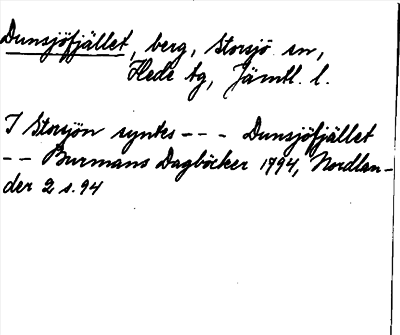 Dunsjöfjället, berg, Storsjö sn,
Hede tg, Jämtl. l.
I Storsjön syntes - - - Dunsjöfjället
- - Burmans Dagböcker 1794, Nordlan-
der 2 s. 94